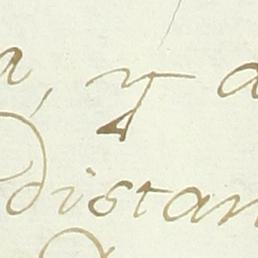 a, y a
distan